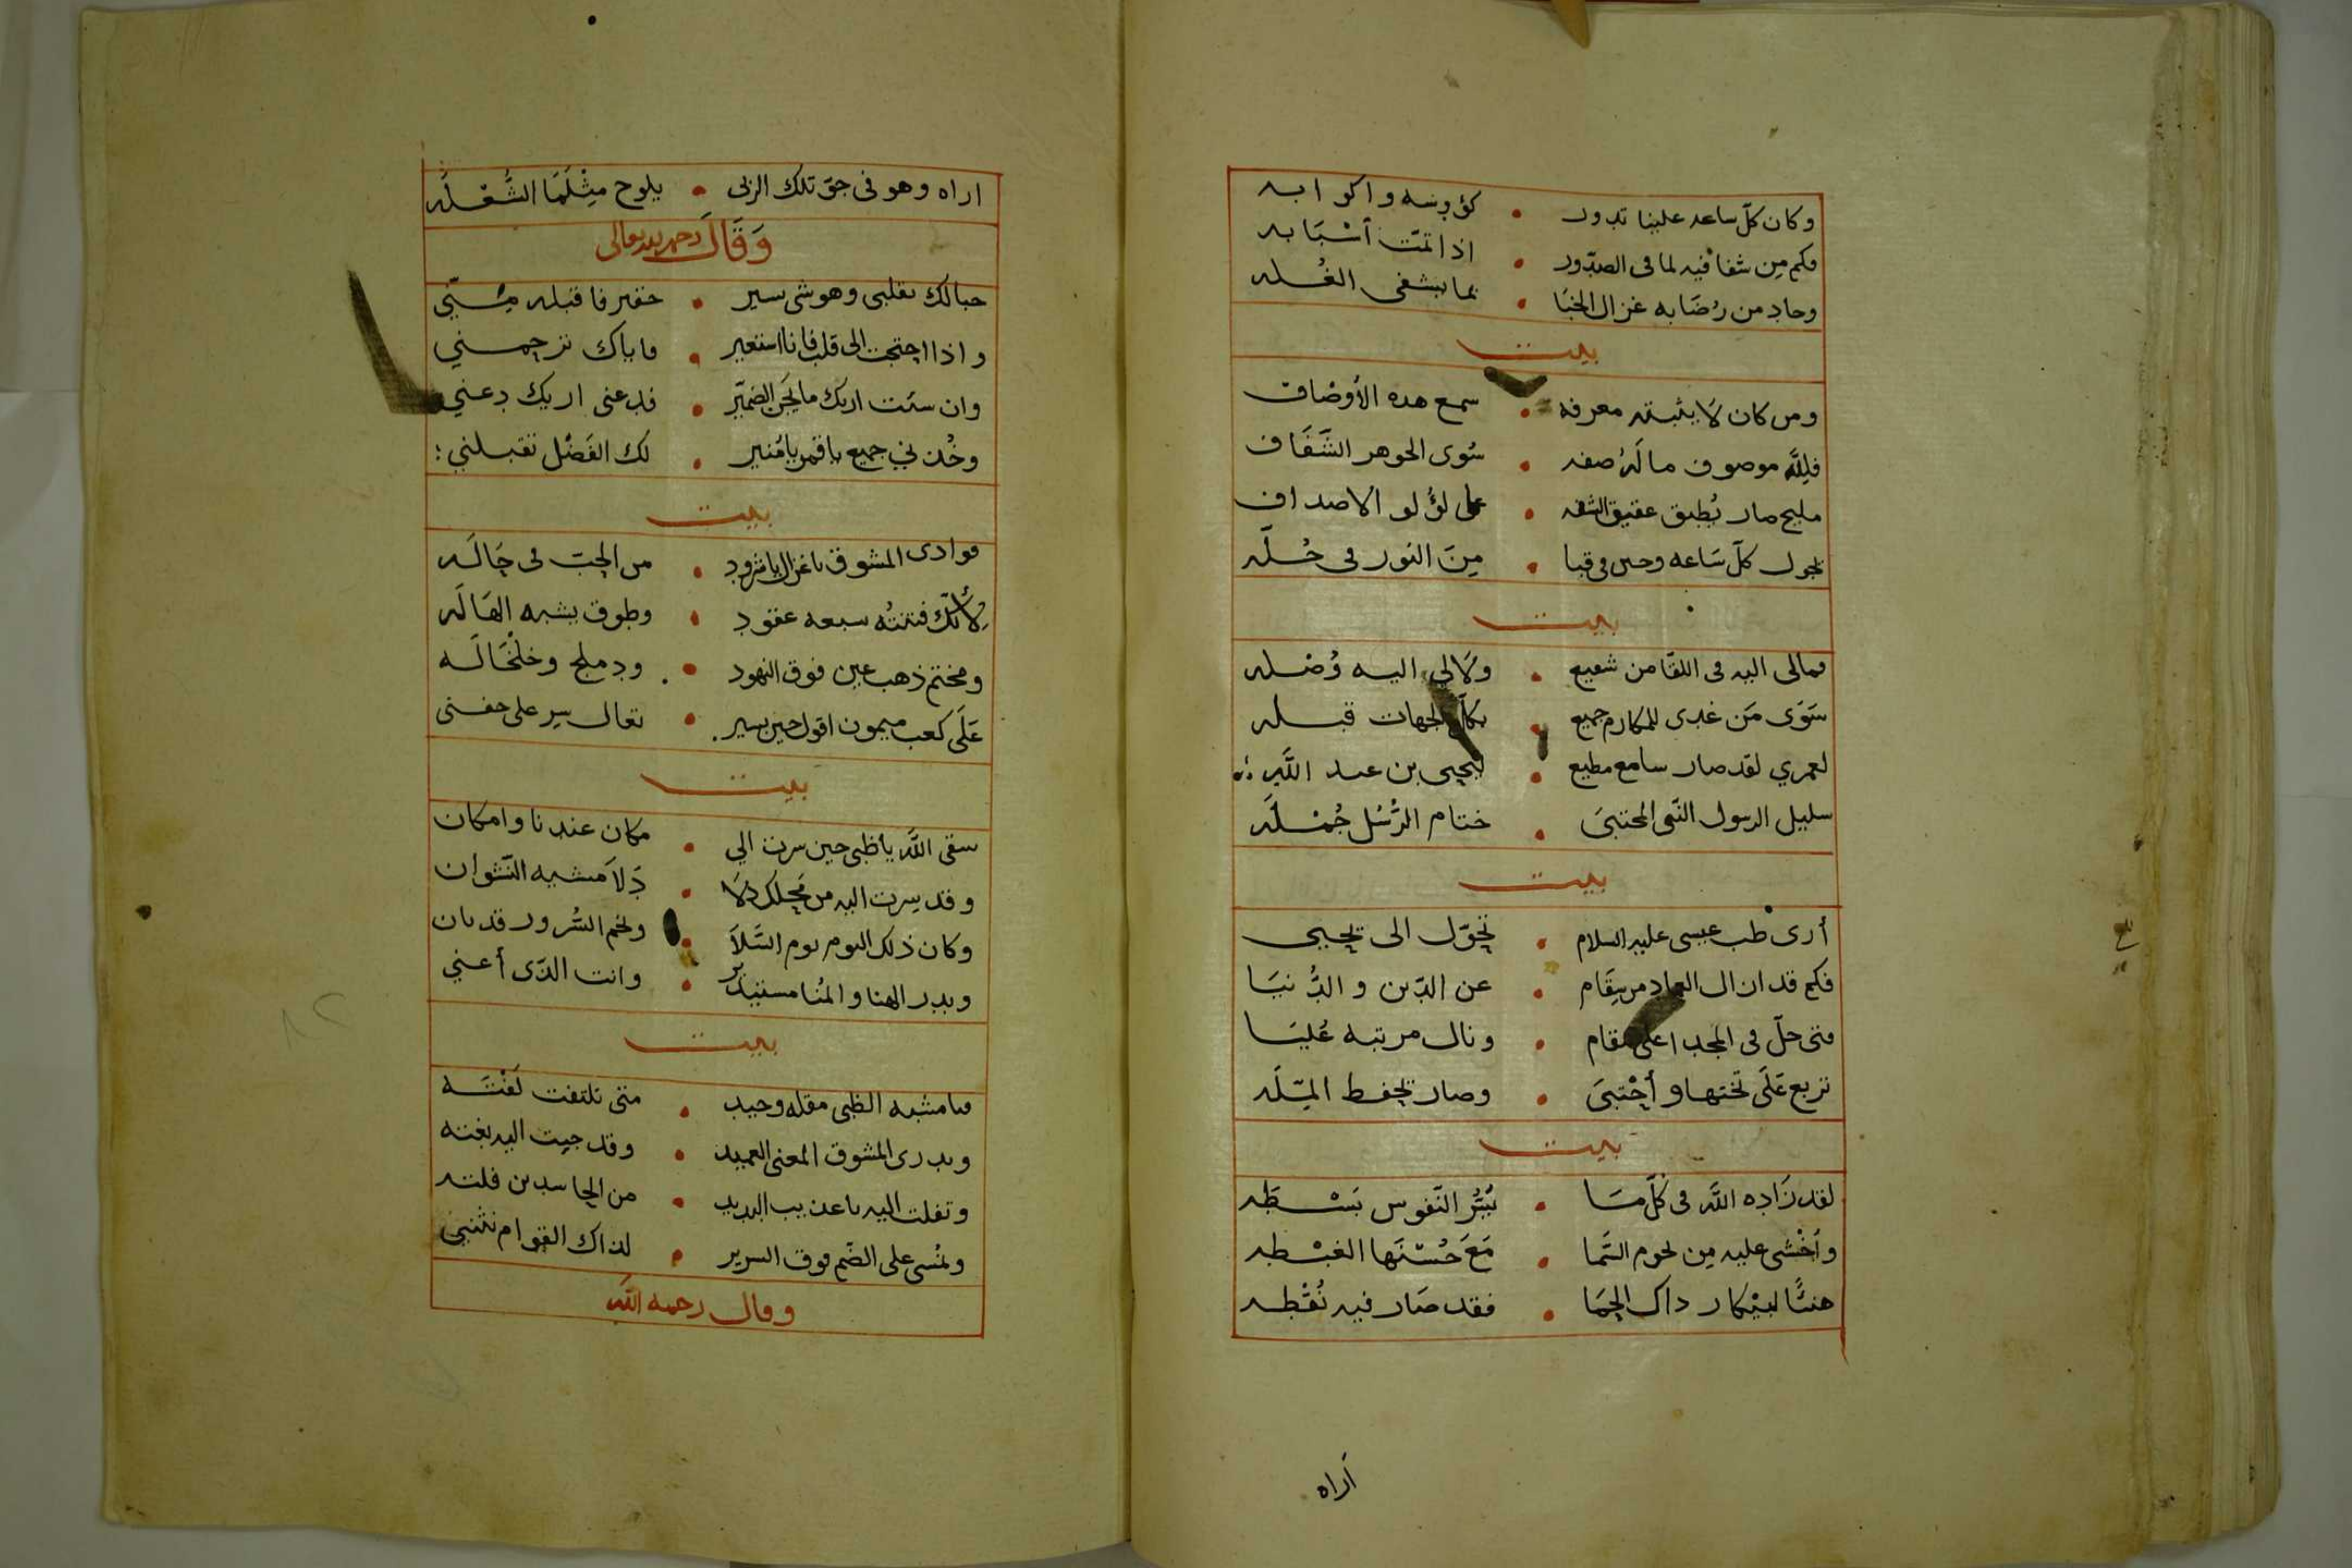 وكان كلّ ساعه علينا تدور • كؤوسه واكوابه
فكم مِن شفا فيه لما فى الصدّور • اذا تمّت أسْبَابه
وجاد من رُضَابه غزال الخبَا • بما يشفى الغُله
بيت
ومن كان لَا يثبته معرفه • سمع هده الأوْصَاف
فلِلّه موصوف ما لَهُ صفه • سُوى الجوهر الشَّفَاف
مليح صار يُطبق عقيق الشفه • على لؤلو الاصداف
يجول كلّ سَاعه وحين فى قبا • مِنَ النور فى حُلّه
بيت
فمالى اليه فى اللقا من شفيع • ولَا لي اليه وُصْله
سَوَى مَن غدى للمكارم جميع • بكلّ الجهات قبله
لعمري لقد صار سامع مطيع • ليحيى بن عبد اللَّه
سليل الرسول النّبى المجتبَى • ختام الرُّسُل جُمْله
بيت
أرى طب عيسى عليه السلام • تحوّل الى يحيى
فكم قد ازال العباد من سِقَام • عن الدّين والدُّنيَا
متى حلّ فى المجد اعلى مقام • ونال مرتبه عُليَا
تربع عَلَى تختها وأحْتبَى • وصار يحفظ المِلّه
بيت
لقد زَاده اللَّه فى كلّ مَا • يَسُرّ النّفوس بَسْطَه
وأخْشى عليه مِن نجوم السَّما • مَعَ حُسْنَها الغبْطه
هنئًا لبيْكار داك الحِمَا • فقد صَار فيه نُقْطه
أراه
اراه وهو فى جوّ تلك الربى • يلوح مِثْلَمَا الشُّعْلَه
وَقَالَ رحمه الله تعالى
حبالك بقلبى وهو شى يسير • حقير فاقبله مِنّي
واذا احتجت الى قلب فانا استعير • فاياك ترجمني
وان شئت اريك ما يجن الضّمِير • فدعنى اريك دعني
وخُذني جميع ياقمر يامُنير • لك الفَضْل تقبلني
بيت
فوادى المشوق ياغزال يا شرود • من الحِبّ فى حَالَه
لِأنّك فتنتُه سبعه عقود • وطوق يشبه الهَالَه
ومختم ذهب عين فوق النهود • ودملج وخلخَالَه
عَلَى كعب ميمون اقول حين يسير • تعال سِر على جفنى
بيت
سقى اللَّه ياظبى حين سرت الي • مكان عندنا وامكان
وقد سرت اليه من مَحِلك دَلَا • دَلَا مشيه النّشوان
وكان ذلك اليوم يوم السَّلَا • ونجم السُّرور قد بان
وبدر الهنا والمُنا مستنير • وانت الدّى أعني
بيت
فيا مشبه الظبى مقله وجيد • متى تلتفت لَفْتَه
ويدرى المشوق المعنى العميد • وقد جيت اليه بغته
وتفلت اليه ياعذيب البديد • من الحاسدين فلته
ونُمسى على الضّم فوق السرير • لذاك القوام تثنبني
وقال رحمه اللَّه